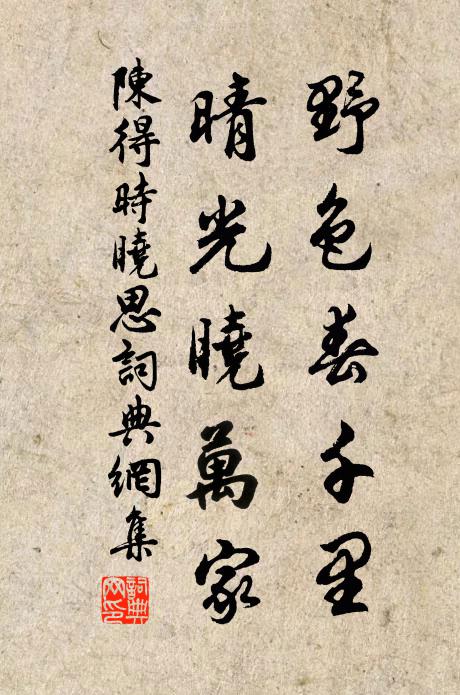 野色春千里
晴光曉萬家
陳得時曉思詞典網集
詞典
网印